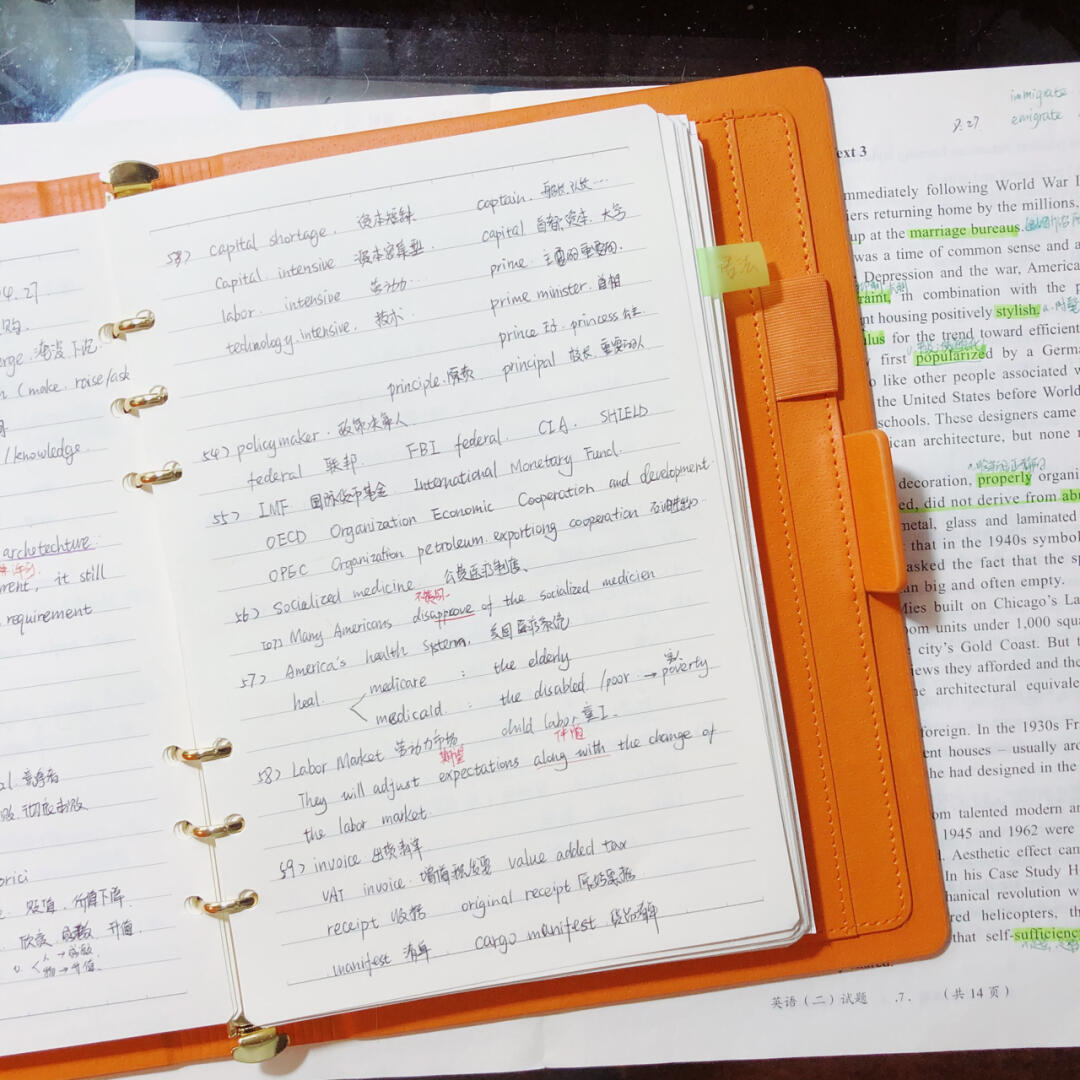 4.27
购.
erge. 淹没下沉
n (make. roise/ask
/knowledge.
architechture.
rrent, it still
requirement
al. 竞争者
彻底击败
orici
贬值. 价值下降.
欣赏. 感激 升值.
人→感激.
物→升值.
53) capital shortage. 资本短缺 captain. 船长.队长...
capital intensive 资本密集型 capital 首都.资本.大写
labor. intensive 劳动力... prime. 主要的重要的.
technology.intensive. 技术 prime minister. 首相
prince 王子. princess 公主.
principle.原则. principal 校长.重要的人
54) policymaker. 政策决策人
federal 联邦. FBI federal. CIA. SHIELD
55) IMF 国际货币基金 International Monetary Fund.
OECD Organization Economic Cooperation and development.
OPEC Organization petroleum. exportiong cooperation 石油进出口..
56) socialized medicine 公费医疗制度.
不赞同.
Many Americans disapprove of the socialized medicien
57) America's health system. 美国医疗系统
heal. medicare : the elderly
medicaid. : the disabled /poor → poverty
穷人
58) Labor Market 劳动力市场 child labor 童工.
期望 伴随
They will adjust expectations along with the change of
the labor market
59) invoice 出货清单
VAT invoice. 增值税发票 value added tax
receipt 收据 original receipt 原始票据
manifest 清单. cargo manifest 货品清单
语法
immigrate
8.27. emigrate
ext 3
mmediately following World War I
iers returning home by the millions,
up at the marriage bureaus.
was a time of common sense and a
Depression and the war, America
raint, in combination with the p
nt housing positively stylish.
lus for the trend toward efficient
first popularized by a Germa
o like other people associated w
the United States before World W
schools. These designers came
ican architecture, but none m
decoration, properly organi
ed, did not derive from abu
metal, glass and laminated
that in the 1940s symbol
asked the fact that the sp
an big and often empty.
Mies built on Chicago's La
oom units under 1,000 squa
city's Gold Coast. But t
iews they afforded and the
he architectural equivale
foreign. In the 1930s Fr
ent houses – usually aro
he had designed in the
om talented modern ar
1945 and 1962 were
. Aesthetic effect can
In his Case Study H
hanical revolution w
red helicopters, th
that self-sufficienc
英语（二）试题 .7. （共 14 页）